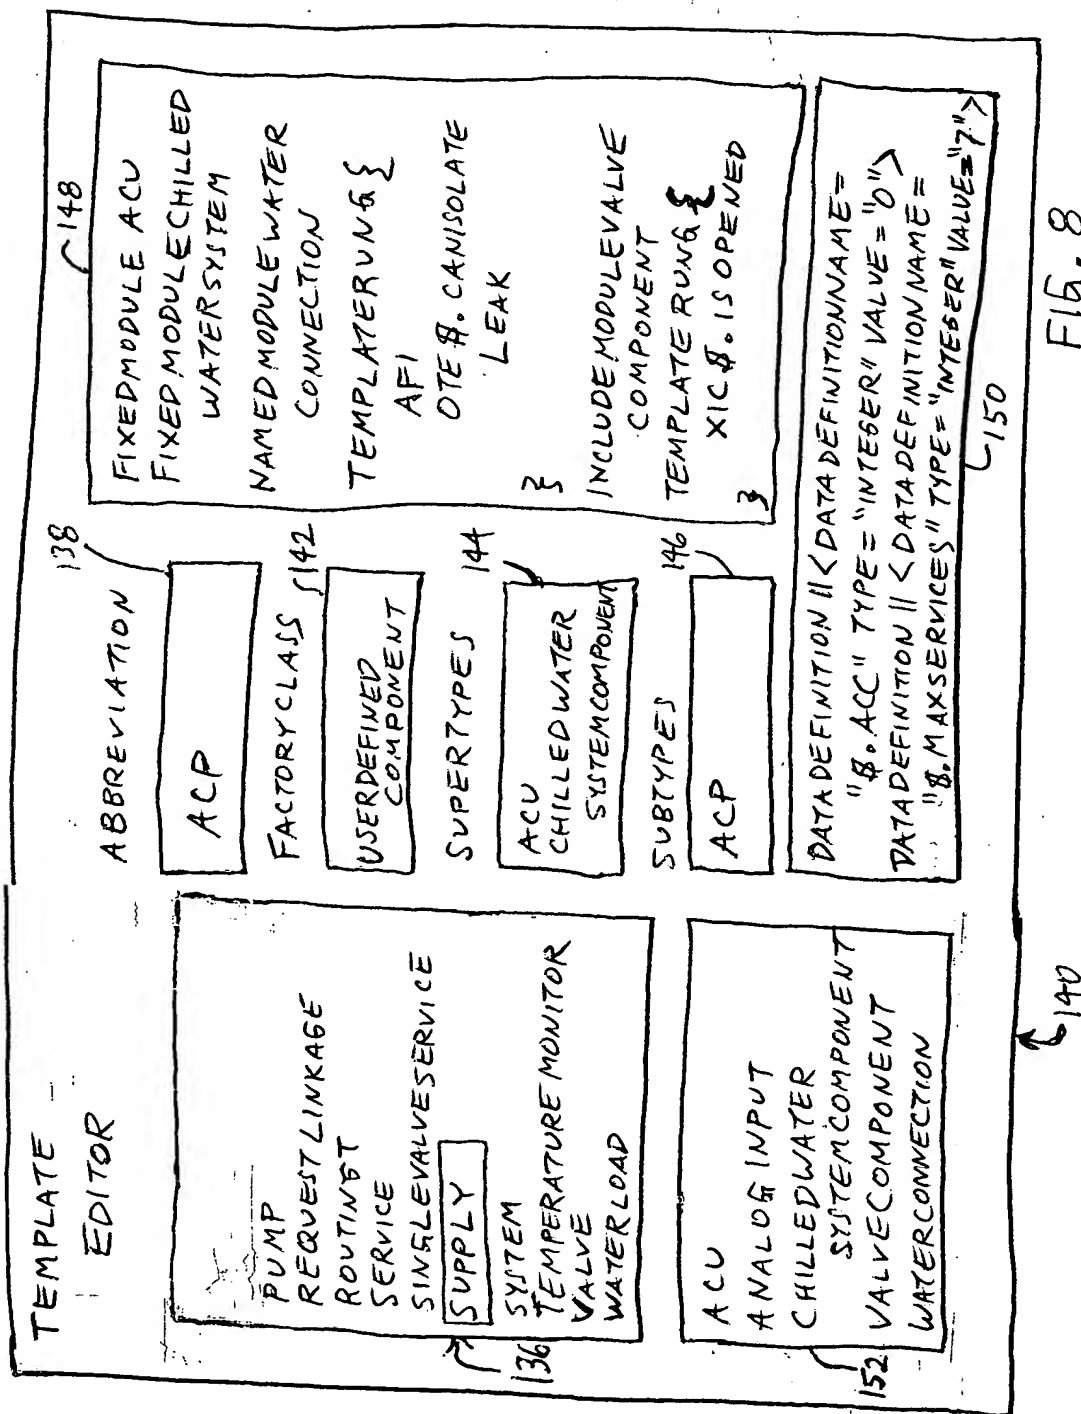 TEMPLATE
EDITOR
PUMP
REQUEST LINKAGE
ROUTINGT
SERVICE
SINGLEVALVESERVICE
SUPPLY
SYSTEM
TEMPERATURE MONITOR
VALVE
WATERLOAD
136
ACU
ANALOG INPUT
CHILLEDWATER
SYSTEMCOMPONENT
VALVECOMPONENT
WATERCONNECTION
152
ABBREVIATION
138
ACP
FACTORYCLASS
142
USERDEFINED
COMPONENT
SUPERTYPES
144
ACU
CHILLEDWATER
SYSTEMCOMPONENT
SUBTYPES
146
ACP
148
FIXEDMODULE ACU
FIXEDMODULECHILLED
WATERSYSTEM
NAMEDMODULEWATER
CONNECTION
TEMPLATERUNG {
AFI
OTE $. CANISOLATE
LEAK
}
INCLUDEMODULEVALVE
COMPONENT
TEMPLATE RUNG {
XIC $. IS OPENED
}
DATADEFINITION || <DATADEFINITIONNAME=
"$.ACC" TYPE="INTEGER" VALUE="0">
DATADEFINITION || <DATADEFINITIONNAME=
"$.MAXSERVICES" TYPE="INTEGER" VALUE="7">
150
140
FIG. 8